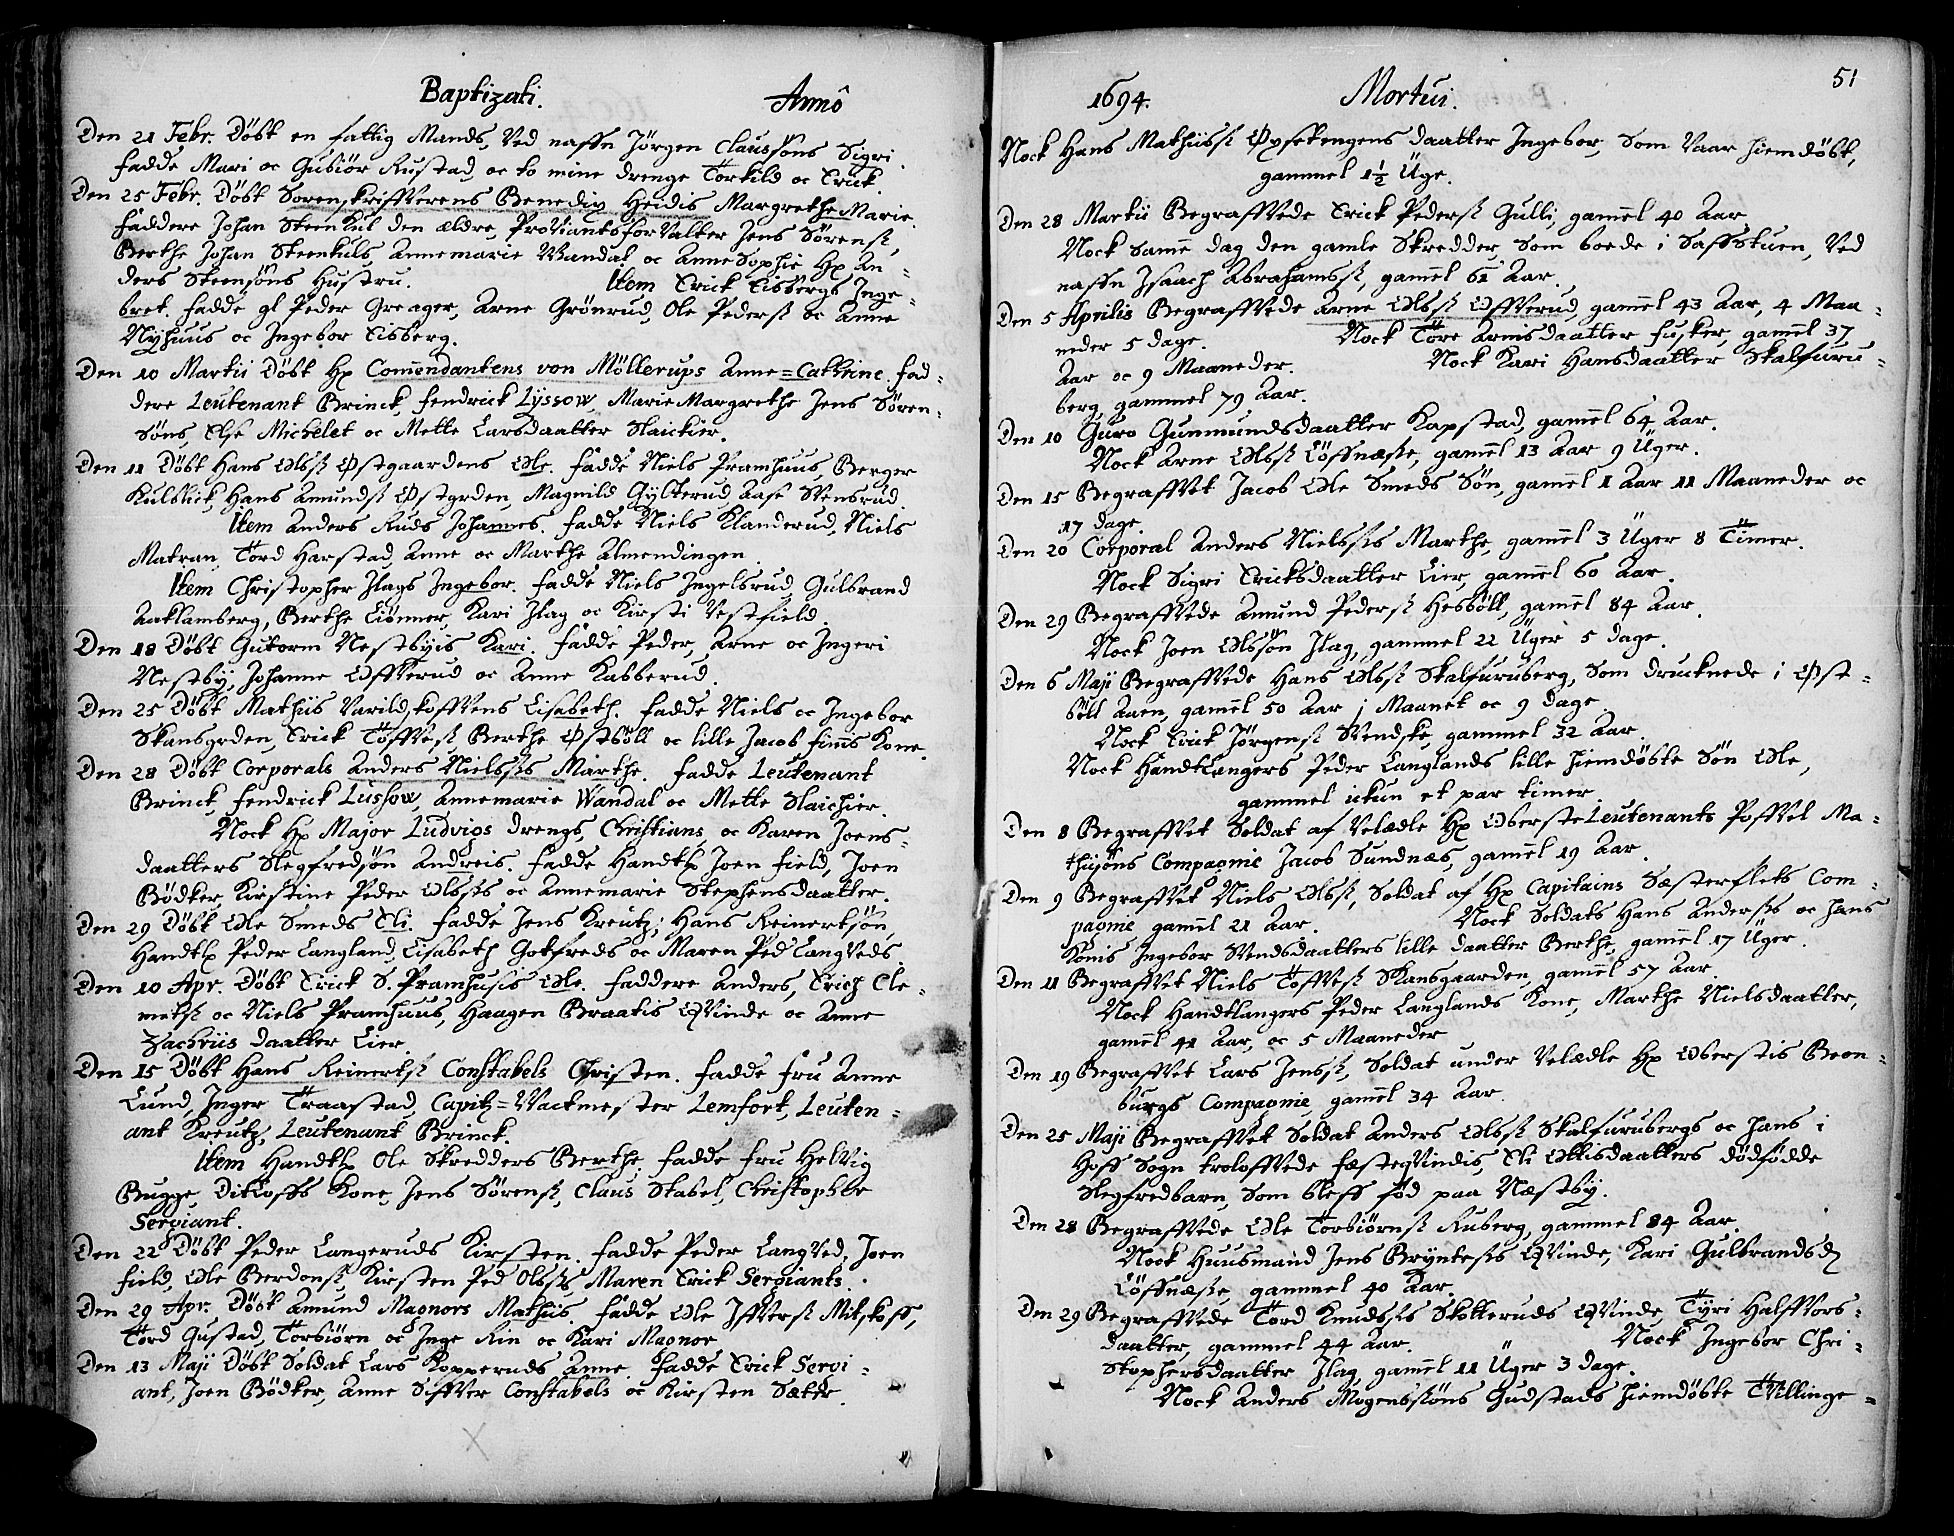 Baptizati. Annô
Den 21 Febr. Döbt en fattig Mands, Ved naffn Jörgen Claussöns Sigri.
fadde Mari oc Gubiör Rustad, oc to mine drenge Törkild oc Erick.
Den 25 Febr. Döbt Sorenskriffverens Benedix Heidis Margrethe Marie.
faddere Johan Steenkul den ældre, Proviantsforvalter Jens Sörenß,
Berthe Johan Steenkuls, Annemarie Wandal oc Anne Sophie Hr An-
ders Steensöns Hustru. Item Erick Eisbergs Inge-
bret. fadde gl Peder Greager, Arne Grönrud, Ole Pederß oc Anne
Nyhuus oc Ingebor Eisberg.
Den 10 Martii Döbt Hr Comendantens von Möllerups Anne=Cathrine. fad-
dere Leutenant Brinck, fendrick Lyssow, Marie Margrethe Jens Sören-
söns, Else Michelet oc Mette Larsdaatter Slaickier.
Den 11 Döbt Hans Olsß Östgaardens Ole. fadde Niels Pramhuus, Berger
Kulblick, Hans Amundß Östgrden, Magnild Gylterud, Aase Stensrud.
Item Anders Ruds Johannes. fadde Niels Klanderud, Niels
Matran, Tord Harstad, Anne oc Marthe Almendingen.
Item Christopher Ilags Ingebor. fadde Niels Ingelsrud, Gulbrand
Aaklamberg, Berthe Liönner, Kari Ilag oc Kirsti Vestfield.
Den 18 Döbt Gutorm Nestbyis Kari. fadde Peder, Arne oc Ingeri
Nestby, Johanne Offverud oc Anne Kabberud.
Den 25 Döbt Mathiis Varildskoffvens Lisabeth. fadde Niels oc Ingebor
Skansgrden, Erick Töffveß, Berthe Östböll oc lille Jacob finns Kone.
Den 28 Döbt Corporals Anders Nielsßs Marthe. fadde Leutenant
Brinck, fendrick Lussow, Annemarie Wandal oc Mette Slaichier.
Nock Hr Major Ludvigs drengs, Christians, oc Karen Joens-
daatters Slegfredsön Andreis. fadde Handtl Joen field, Joen
Bödker, Kirstine Peder Olsßs oc Annemarie Stephensdaatter.
Den 29 Döbt Ole Smeds Eli. fadde Jens Kreutz, Hans Reinertsön
Handtl Peder Langland, Lisabeth Gotfreds oc Maren Ped Langveds.
Den 10 Apr. Döbt Erick S. Pramhusis Ole. faddere Anders, Erich Cle-
metß oc Niels Pramhuus, Haagen Braatis Qvinde oc Anne
Zachriis daatter Lier.
Den 15 Döbt Hans Reinertß Constabels Christen. fadde fru Anne
Lund, Inger Traastad, Capitz=Vactmester Lemfort, Leuten-
ant Kreutz, Leutenant Brinck.
Item Handtl Ole Skredders Berthe. fadde fru Helvig
Bugge, Ditloffs Kone, Jens Sörenß, Claus Stabel, Christopher
Sergiant.
Den 22 Döbt Peder Langeruds Kirsten. fadde Peder Langved, Joen
field, Ole Berdonß, Kirsten Ped Olsßs, Maren Erick Sergiants.
Den 29 Apr. Döbt Amund Magnors Mathiis. fadde Ole Iffverß Mitskoff,
Tord Gustad, Torbiörn oc Inge Rin oc Kari Magnor.
Den 13 Maji Döbt Soldat Lars Kopperuds Anne. fadde Erick Sergi-
ant, Joen Bödker, Anne Siffver Constabels oc Kirsten Sæter.
1694. Mortui. 51
Nock Hans Mathiisß Öysetengens daatter Ingebor, Som Vaar hiemdöbt,
gammel 1½ Üge.
Den 28 Martii Begraffvede Erick Pedersß Gulli, gamel 40 Aar
Nock Same dag den gamle Skredder, Som boede i Saffstuen, Ved
naffn Isaach Abrahamsß, gamel 61 Aar.
Den 5 Aprilis Begraffvede Arne Olsß Offverud, gamel 43 Aar, 4 Maa-
neder 5 dage. Nock Töre Arnisdaatter fusker, gamel 37
Aar oc 9 Maaneder. Nock Kari Hansdaatter Skalfuru-
berg, gammel 79 Aar.
Den 10 Guro Gunmundsdaatter Kapstad, gamel 64 Aar.
Nock Arne Olsß Löffnæsße, gamel 13 Aar 9 Üger.
Den 15 Begraffvet Jacob Ole Smeds Sön, gamel 1 Aar 11 Maaneder oc
17 dage.
Den 20 Corporal Anders Nielsßs Marthe, gamel 3 Üger 8 Timer.
Nock Sigri Ericksdaatter Lier, gamel 60 Aar.
Den 29 Begraffvede Amund Pedersß Hesböll, gamel 84 Aar.
Nock Joen Olssön Ilag, gammel 22 Üger 5 dage.
Den 6 Maji Begraffvede Hans Olsß Skalfuruberg, Som drucknede i Öst-
böll Aaen, gamel 50 Aar 1 Maanet oc 9 dage.
Nock Erick Jörgensß Svendske, gammel 32 Aar.
Nock Handtlangers Peder Langlands lille hiemdöbte Sön Ole,
gammel ickun et par timer.
Den 8 Begraffvet Soldat af Velædle Hr OberstLeutenants Poffvel Ma-
thisöns Compagnie Jacob Sundnæs, gamel 19 Aar.
Den 9 Begraffvet Niels Olsß, Soldat af Hr Capitains Sæsterflets Com-
pagnie, gamel 21 Aar. Nock Soldats Hans Andersßs oc hans
Konis Ingebor Svendsdaatters lille daatter Berthe, gamel 17 Üger.
Den 11 Begraffvet Niels Töffveß Skansgaarden, gamel 57 Aar.
Nock Handtlangers Peder Langlands Kone, Marthe Nielsdaatter,
gamel 41 Aar, oc 5 Maaneder
Den 19 Begraffvet Lars Jensß, Soldat under Velædle Hr Oberstis Bron-
burgs Compagnie, gamel 34 Aar.
Den 25 Maji Begraffvet Soldat Anders Olsß Skalfurubergs oc hans i
Hoff Sogn troloffvede fæsteqvindis, Eli Ottisdaatters dödfödde
Slegfredbarn, Som bleff föd paa Næstby.
Den 28 Begraffvede Ole Torbiörnß Ruberg, gammel 84 Aar.
Nock Huusmand Jens Bryntesßs Qvinde, Kari Gulbrandsd
Löffnæsße, gammel 40 Aar.
Den 29 Begraffvede Tord Knudsßs Skotteruds Qvinde Tyri Halffvors-
daatter, gammel 44 Aar. Nock Ingebor Chri-
stophersdaatter Ilag, gamel 11 Üger 3 dage.
Nock Anders Mogenssöns Gudstads hiemdöbte Tvillinge-